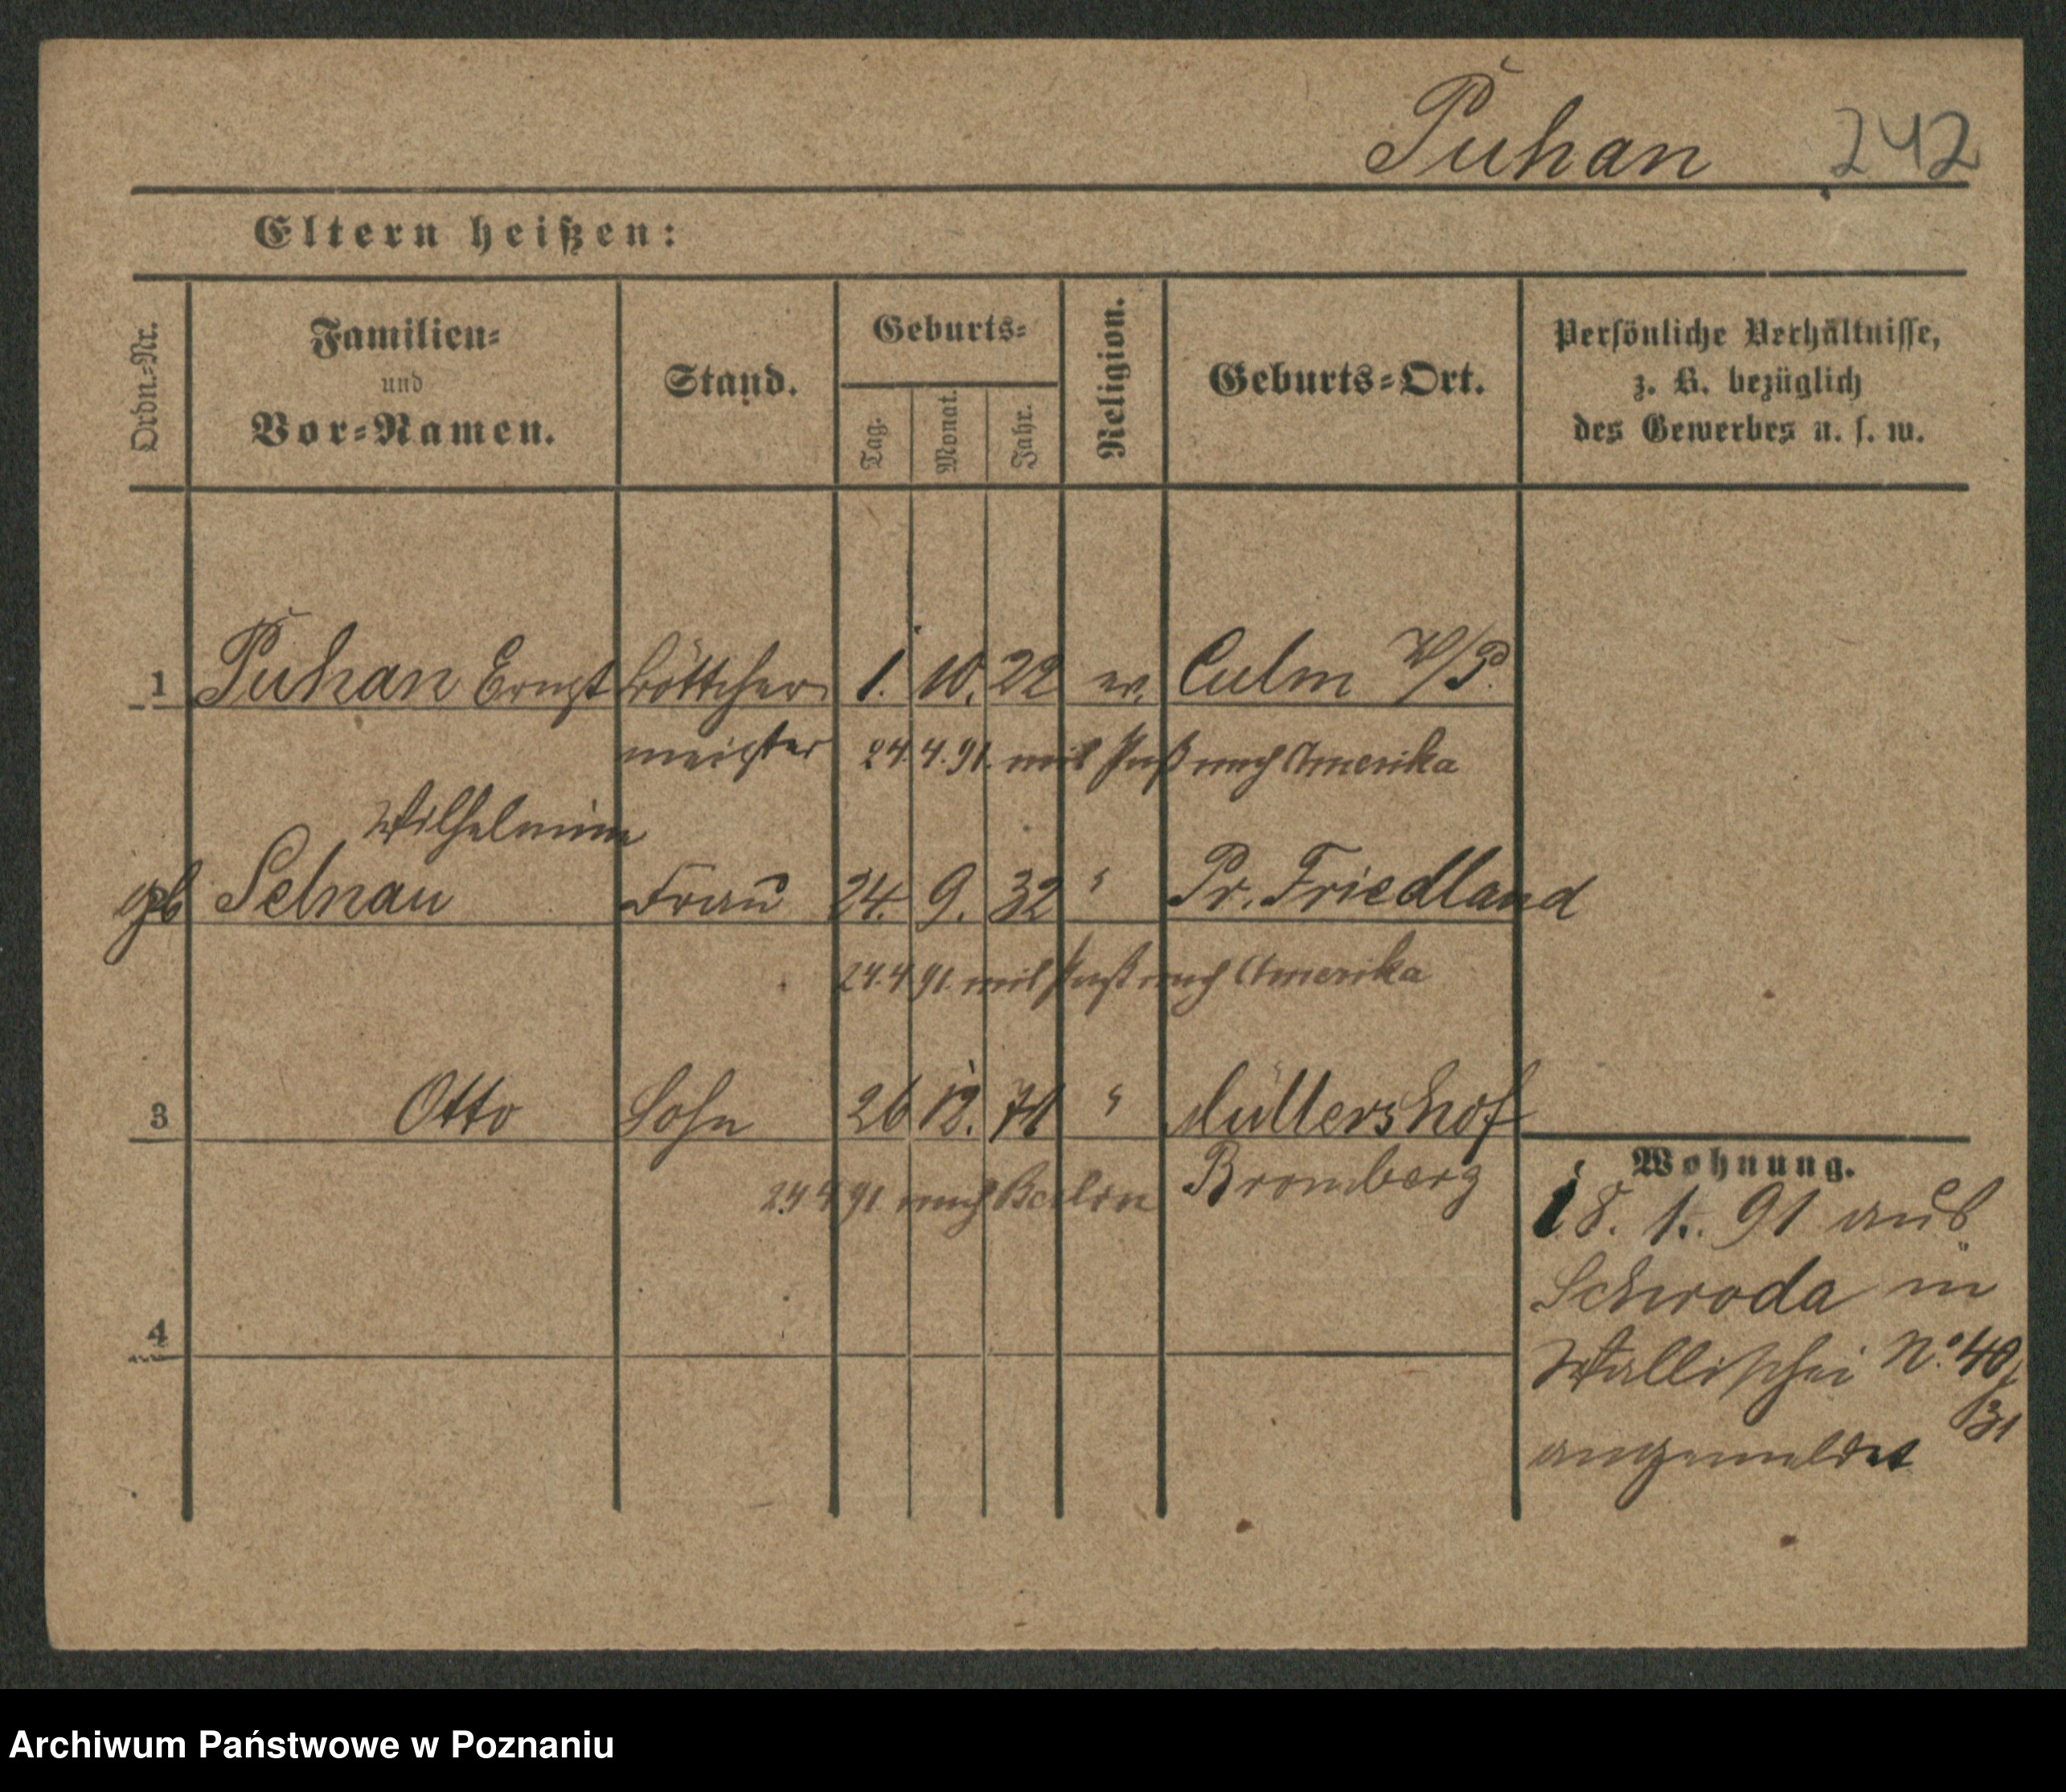 Puhan 242
Eltern heißen:
Ordn.-Nr.
Familien-
und
Vor-Namen.
Stand.
Geburts-
Tag.
Monat.
Jahr.
Religion.
Geburts-Ort.
Persönliche Verhältnisse,
z. B. bezüglich
des Gewerbes u. s. w.
1 Puhan Ernst Böttcher 1. 10. 22 ev. Culm W/P.
meister 24.4.91. mit Paß nach Amerika
Wilhelmine
gb Selnau Frau 24. 9. 32 " Pr. Friedland
24.4.91. mit Paß nach Amerika
3 Otto Sohn 26 12. " Müllershof
Bromberg
24 4 91 nach Berlin
4
Wohnung.
18. 1. 91 aus
Schroda in
Wallischei No. 40/
31
angemeldet
Archiwum Państwowe w Poznaniu